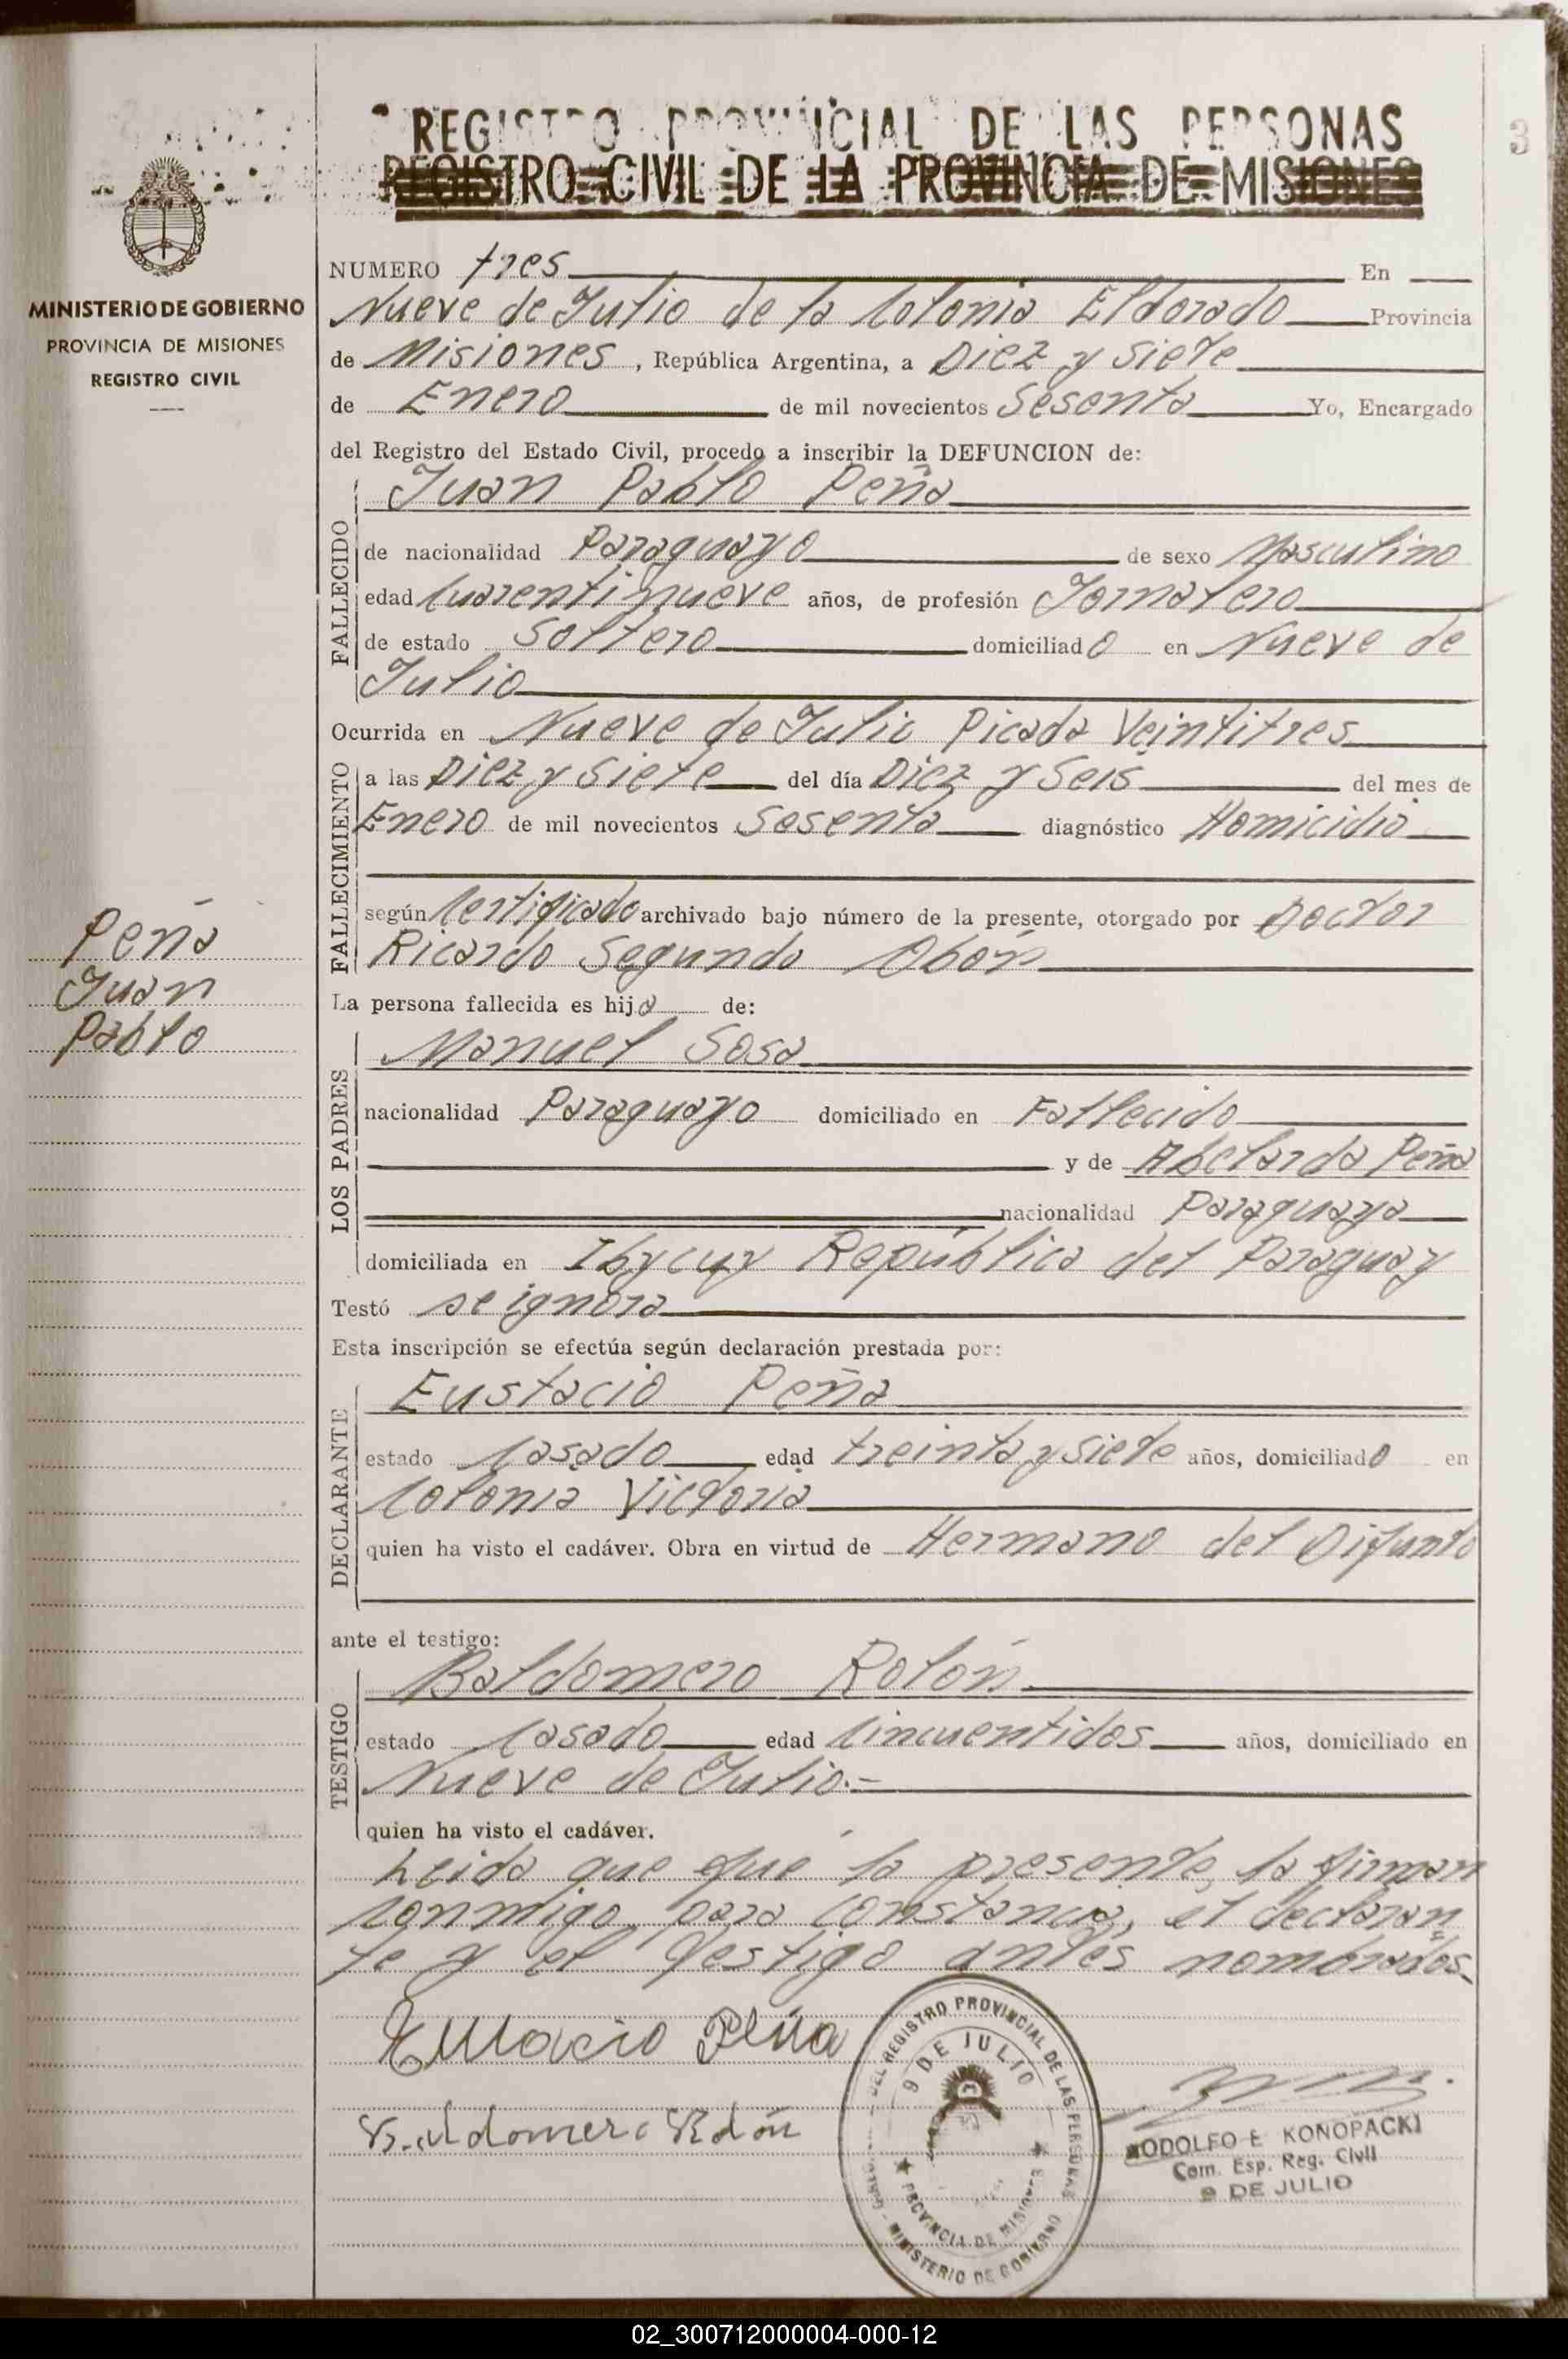 REGISTRO PROVINCIAL DE LAS PERSONAS
REGISTRO CIVIL DE LA PROVINCIA DE MISIONES
3
MINISTERIO DE GOBIERNO
PROVINCIA DE MISIONES
REGISTRO CIVIL
NUMERO tres En
Nueve de Julio de la Colonia Eldorado Provincia
de Misiones, República Argentina, a Diez y Siete
de Enero de mil novecientos Sesenta Yo, Encargado
del Registro del Estado Civil, procedo a inscribir la DEFUNCION de:
FALLECIDO
Juan Pablo Peña
de nacionalidad Paraguayo de sexo Masculino
edad Cuarentinueve años, de profesión Jornalero
de estado Soltero domiciliado en Nueve de
Julio
Ocurrida en Nueve de Julio Picada Veintitres
FALLECIMIENTO
a las Diez y Siete del día Diez y Seis del mes de
Enero de mil novecientos Sesenta diagnóstico Homicidio
según Certificado archivado bajo número de la presente, otorgado por Doctor
Ricardo Segundo
Peña
Juan
Pablo
La persona fallecida es hijo de:
LOS PADRES
Manuel Sosa
nacionalidad Paraguayo domiciliado en Fallecido
y de Abelarda Peña
nacionalidad Paraguaya
domiciliada en Ibycuy República del Paraguay
Testó se ignora
Esta inscripción se efectúa según declaración prestada por:
DECLARANTE
Eustacio Peña
estado Casado edad treinta y siete años, domiciliado en
Colonia Victoria
quien ha visto el cadáver. Obra en virtud de Hermano del Difunto
ante el testigo:
TESTIGO
Baldomero Rolón
estado Casado edad Cincuentidos años, domiciliado en
Nueve de Julio.-
quien ha visto el cadáver.
Leida que fue la presente, la firman
conmigo, para constancia, el declaran
te y el testigo antes nombrados.
Eustacio Peña
Baldomero Rolón
DEL REGISTRO PROVINCIAL DE LAS PERSONAS
9 DE JULIO
PROVINCIA DE MISIONES
MINISTERIO DE GOBIERNO
RODOLFO E KONOPACKI
Com. Esp. Reg. Civil
9 DE JULIO
02_300712000004-000-12